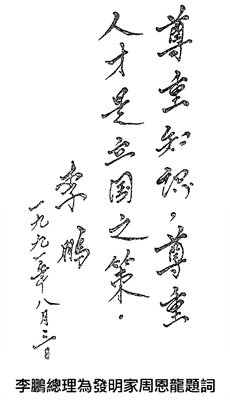 尊重知识，尊重
人才是立国之策。
李鹏
一九九一年八月三日
李鵬總理為發明家周恩龍題詞